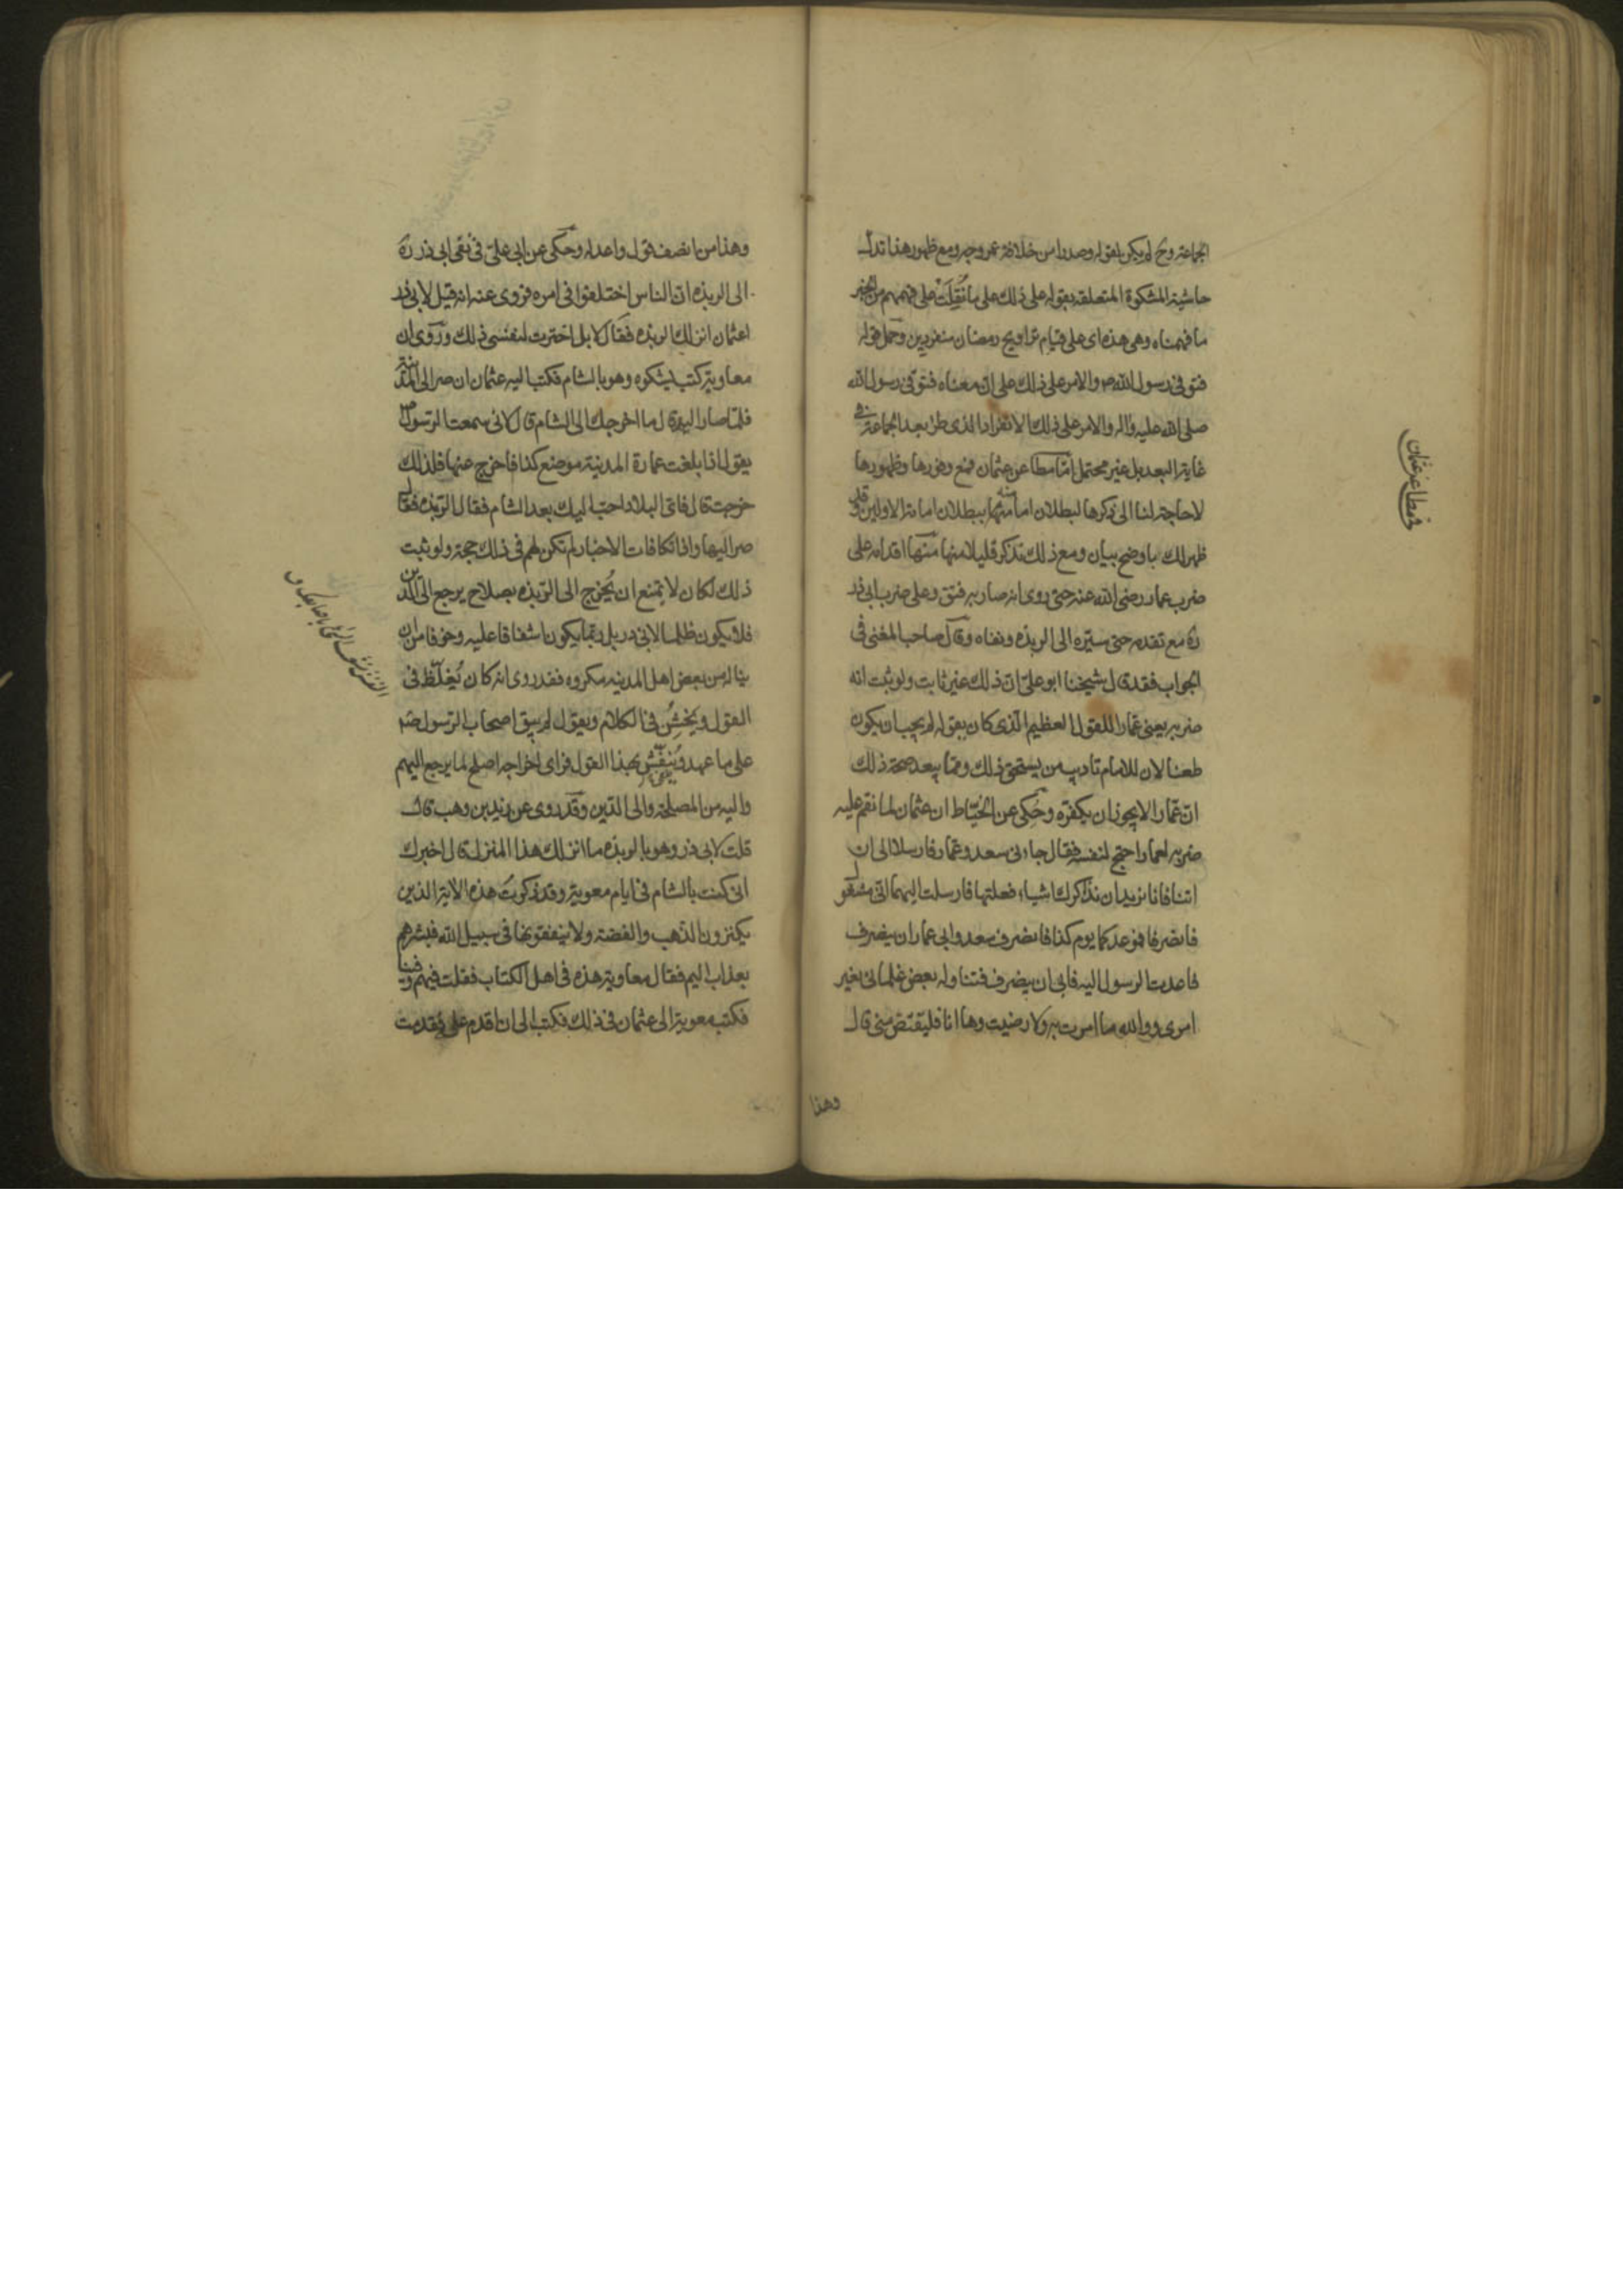 الجماعة وح لم يكن لقوله وصدرا من خلافة عمر وجه ومع ظهور هذا تدل
حاشية المشكوة المتعلقة بقوله على ذلك على ما نُقِلَت على فهمهم من الخبر
ما فهمناه وهى هذه اى على قيام تراويح رمضان منفردين وحمل قوله
فتوفى رسول الله ص والامر على ذلك على ان معناه فتوفى رسول الله
صلى الله عليه واله والامر على ذلك الانفراد الذى طرء بعد الجماعة فى
غاية البعد بل غير محتمل امّا مطاعن عثمان فمع وفورها وظهورها
لا حاجة لنا الى ذكرها لبطلان امامته ببطلان امامة الاولين وقد
ظهر لك باوضح بيان ومع ذلك نذكر قليلا منها منها اقدامه على
ضرب عمار رضى الله عنه حتى روى انه صار به فتق وعلى ضرب ابى ذر
ره مع تقدمه حتى سيّره الى الربذه ونفاه وقال صاحب المغنى فى
الجواب فقد قال شيخنا ابو على ان ذلك غير ثابت ولو ثبت انه
ضربه يعنى عمارا للقول العظيم الذى كان يقوله لم يجب ان يكون
طعنا لان للامام تاديب من يستحق ذلك وممّا يبعد صحة ذلك
ان عمّارا لا يجوز ان يكفره وحُكى عن الخيّاط ان عثمان لما نقم عليه
ضربه لعمار احتج لنفسه فقال جاءنى سعد وعمّار فارسلا الى ان
اتنا فانا نريد ان نذاكرك اشياء فعلتها فارسلت اليهما انى مشغول
فانصرفا فموعدكما يوم كذا فانصرف سعد وابى عمار ان ينصرف
فاعدت الرسول اليه فابى ان ينصرف فتناوله بعض غلمانى بغير
امرى ووالله ما امرت به ولا رضيت وها انا فليقتص منى قال
وهذا
فى مطاعن عثمان
وهذا من انصف قول واعدله وحكى عن ابى على فى نفى ابى ذر ره
الى الربذه ان الناس اختلفوا فى امره فروى عنه انه قيل لابى ذر
اعثمان انزلك الربذه فقال لا بل اخترت لنفسى ذلك وروى ان
معاوية كتب يشكوه وهو بالشام فكتب اليه عثمان ان صر الى المدينة
فلمّا صار اليها قال ما اخرجك الى الشام قال لانى سمعت الرسول ص
يقول اذا بلغت عمارة المدينة موضع كذا فاخرج عنها فلذلك
خرجت قال فاى البلاد احبّ اليك بعد الشام فقال الربذه فقال
صر اليها واذا تكافات الاخبار لم تكن لهم فى ذلك حجة ولو ثبت
ذلك لكان لا يمتنع ان يُخرج الى الربذه بصلاح يرجع الى الدين
فلا يكون ظلما لابى ذر بل ربّما يكون اشفاقا عليه وخوفا من ان
يناله من بعض اهل المدينه مكروه فقد روى انه كان يُغلّظ فى
القول ويخشُن فى الكلام ويقول لم يبق اصحاب الرسول ص
على ما عهد ويُنفّش بهذا القول فراى اخراجه اصلح لما يرجع اليهم
واليه من المصلحة والى الدّين وقد روى عن زيد بن وهب قال
قلت لابى ذر وهو بالربذه ما انزلك هذا المنزل قال اخبرك
انى كنت بالشام فى ايام معوية وقد ذكرتُ هذه الاية الذين
يكنزون الذهب والفضة ولا ينفقونها فى سبيل الله فبشرهم
بعذاب اليم فقال معاوية هذه فى اهل الكتاب فقلت فيهم وفينا
فكتب معوية الى عثمان فى ذلك فكتب الى ان اقدم على فقدمت